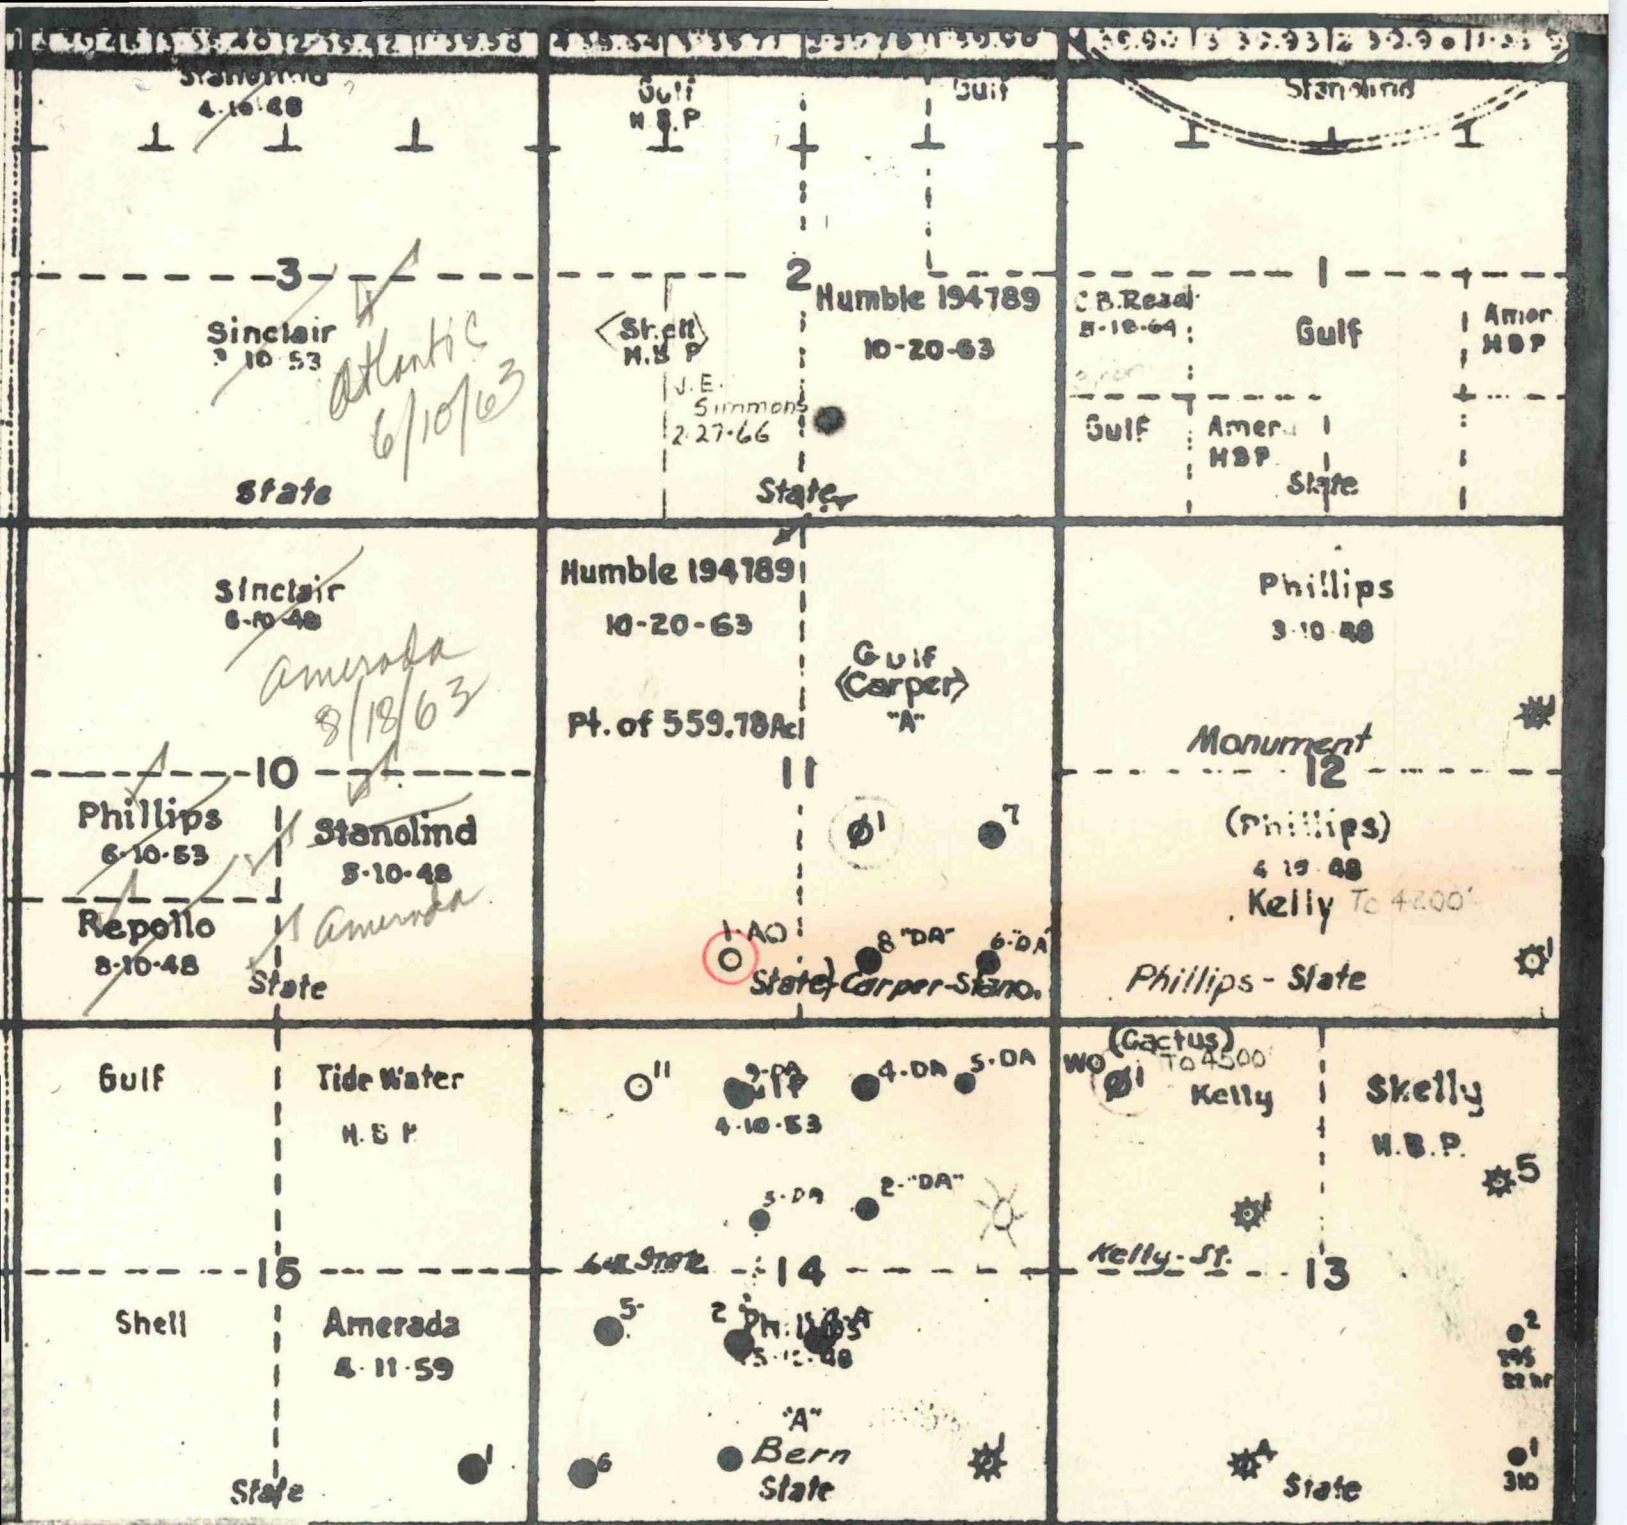 Stanolind
4-10-48
3
Sinclair
10 53
Atlantic
6/10/63
State
Gulf
H.B.P
Gulf
2
Humble 194789
10-20-63
H.B P
J.E.
Simmons
2-27-66
State
Stanolind
1
C.B. Read
5-18-64
Gulf
Amer
HBP
Gulf
Amer
HBP
State
Sinclair
6-10-48
Amerada
8/18/63
10
Phillips
6-10-53
Stanolind
5-10-48
Repollo
8-10-48
Amerada
State
Humble 194789
10-20-63
Pt. of 559.78Ac
Gulf
(Carper)
"A"
11
1
7
1-AO
8 "DA"
6-"DA"
State
Carper-Stano.
Phillips
3-10-48
Monument
12
(Phillips)
48
Kelly To 4200'
1
Phillips-State
Gulf
Tide Water
H.B P
15
Shell
Amerada
4-11-59
1
State
11
4-DA
5-DA
4-10-53
3-DA
2-"DA"
State
14
5
2
Phillips
48
"A"
Bern
State
6
1
(Cactus)
To 4500'
WO
1
Kelly
Skelly
H.B.P.
5
1
Kelly-St.
13
2
22 hr
A
State
1
310